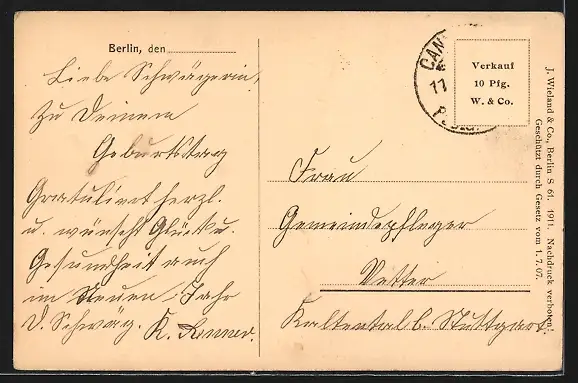 Berlin, den
Liebe Schwägerin,
Zu Deinem
Geburtstag
Gratuliert herzl.
u. wünscht Glück u.
Gesundheit auch
im Neuen Jahr
D. Schwäg. K.
CAN
11
Verkauf
10 Pfg.
W. & Co.
Frau
Gemeindepfleger
Vetter
Kaltental b. Stuttgart.
J. Wieland & Co., Berlin S 61. 1911. Nachdruck verboten!
Geschützt durch Gesetz vom 1. 7. 07.